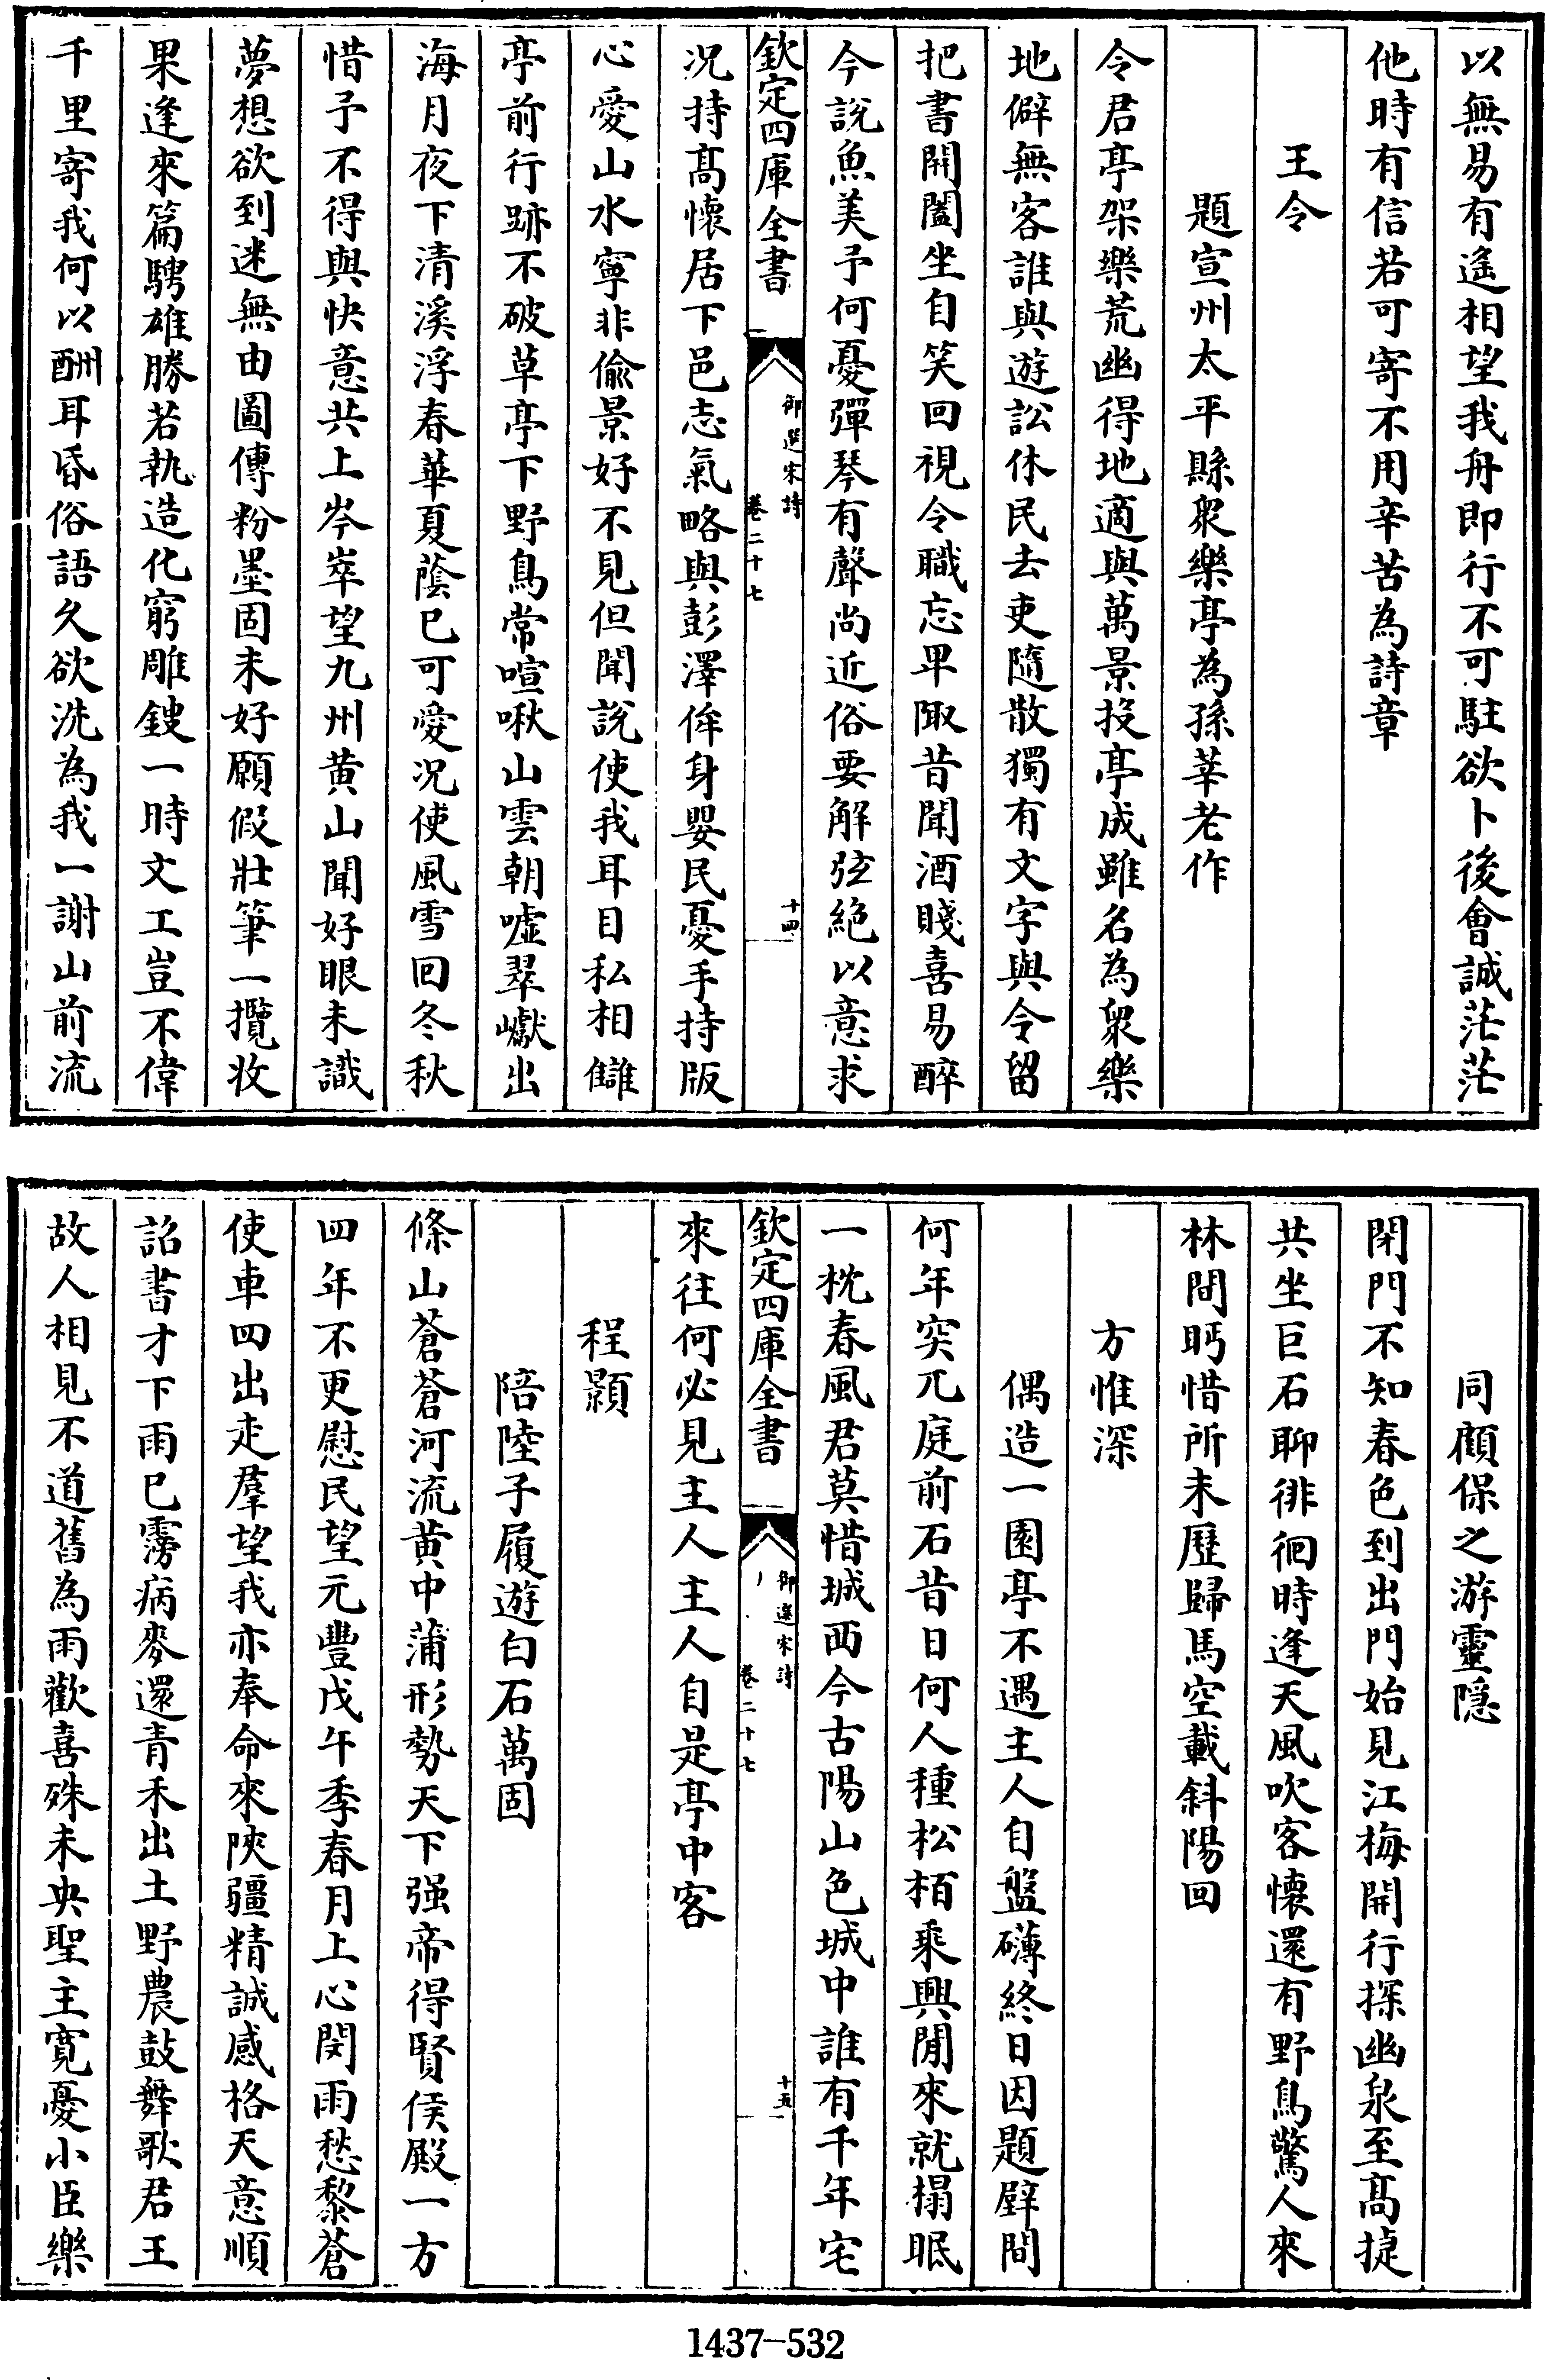 以無易有遙相望我舟即行不可駐欲卜後會誠茫茫
他時有信若可寄不用辛苦為詩章
王令
題宣州太平縣衆樂亭為孫莘老作
令君亭架樂荒幽得地適與萬景投亭成雖名為衆樂
地僻無客誰與遊訟休民去吏隨散獨有文字與令留
把書開闔坐自笑回視令職忘卑陬昔聞酒賤喜易醉
今說魚美予何憂彈琴有聲尚近俗要解弦絕以意求
欽定四庫全書
御選宋詩
卷二十七
十四
況持髙懷居下邑志氣略與彭澤侔身嬰民憂手持版
心愛山水寧非偷景好不見但聞說使我耳目私相讎
亭前行跡不破草亭下野鳥常喧啾山雲朝嘘翠巘出
海月夜下清溪浮春華夏蔭已可愛況使風雪回冬秋
惜予不得與快意共上岑崒望九州黄山聞好眼未識
夢想欲到迷無由圖傳粉墨固未好願假壯筆一攬收
果逢來篇騁雄勝若執造化窮雕鎪一時文工豈不偉
千里寄我何以酬耳昏俗語久欲洗為我一謝山前流
同頋保之游靈隠
閉門不知春色到出門始見江梅開行探幽泉至髙捷
共坐巨石聊徘徊時逢天風吹客懷還有野鳥驚人來
林間眄惜所未歷歸馬空載斜陽回
方惟深
偶造一園亭不遇主人自盤礴終日因題壁間
何年突兀庭前石昔日何人種松栢乘興閒來就榻眠
一枕春風君莫惜城西今古陽山色城中誰有千年宅
欽定四庫全書
御選宋詩
卷二十七
十五
來往何必見主人主人自是亭中客
程顥
陪陸子履遊白石萬固
條山蒼蒼河流黄中蒲形勢天下强帝得賢侯殿一方
四年不更慰民望元豐戊午季春月上心閔雨愁黎蒼
使車四出走羣望我亦奉命來陜疆精誠感格天意順
詔書才下雨已霶病麥還青禾出土野農鼓舞歌君王
故人相見不道舊為雨歡喜殊未央聖主寛憂小臣樂
1437-532